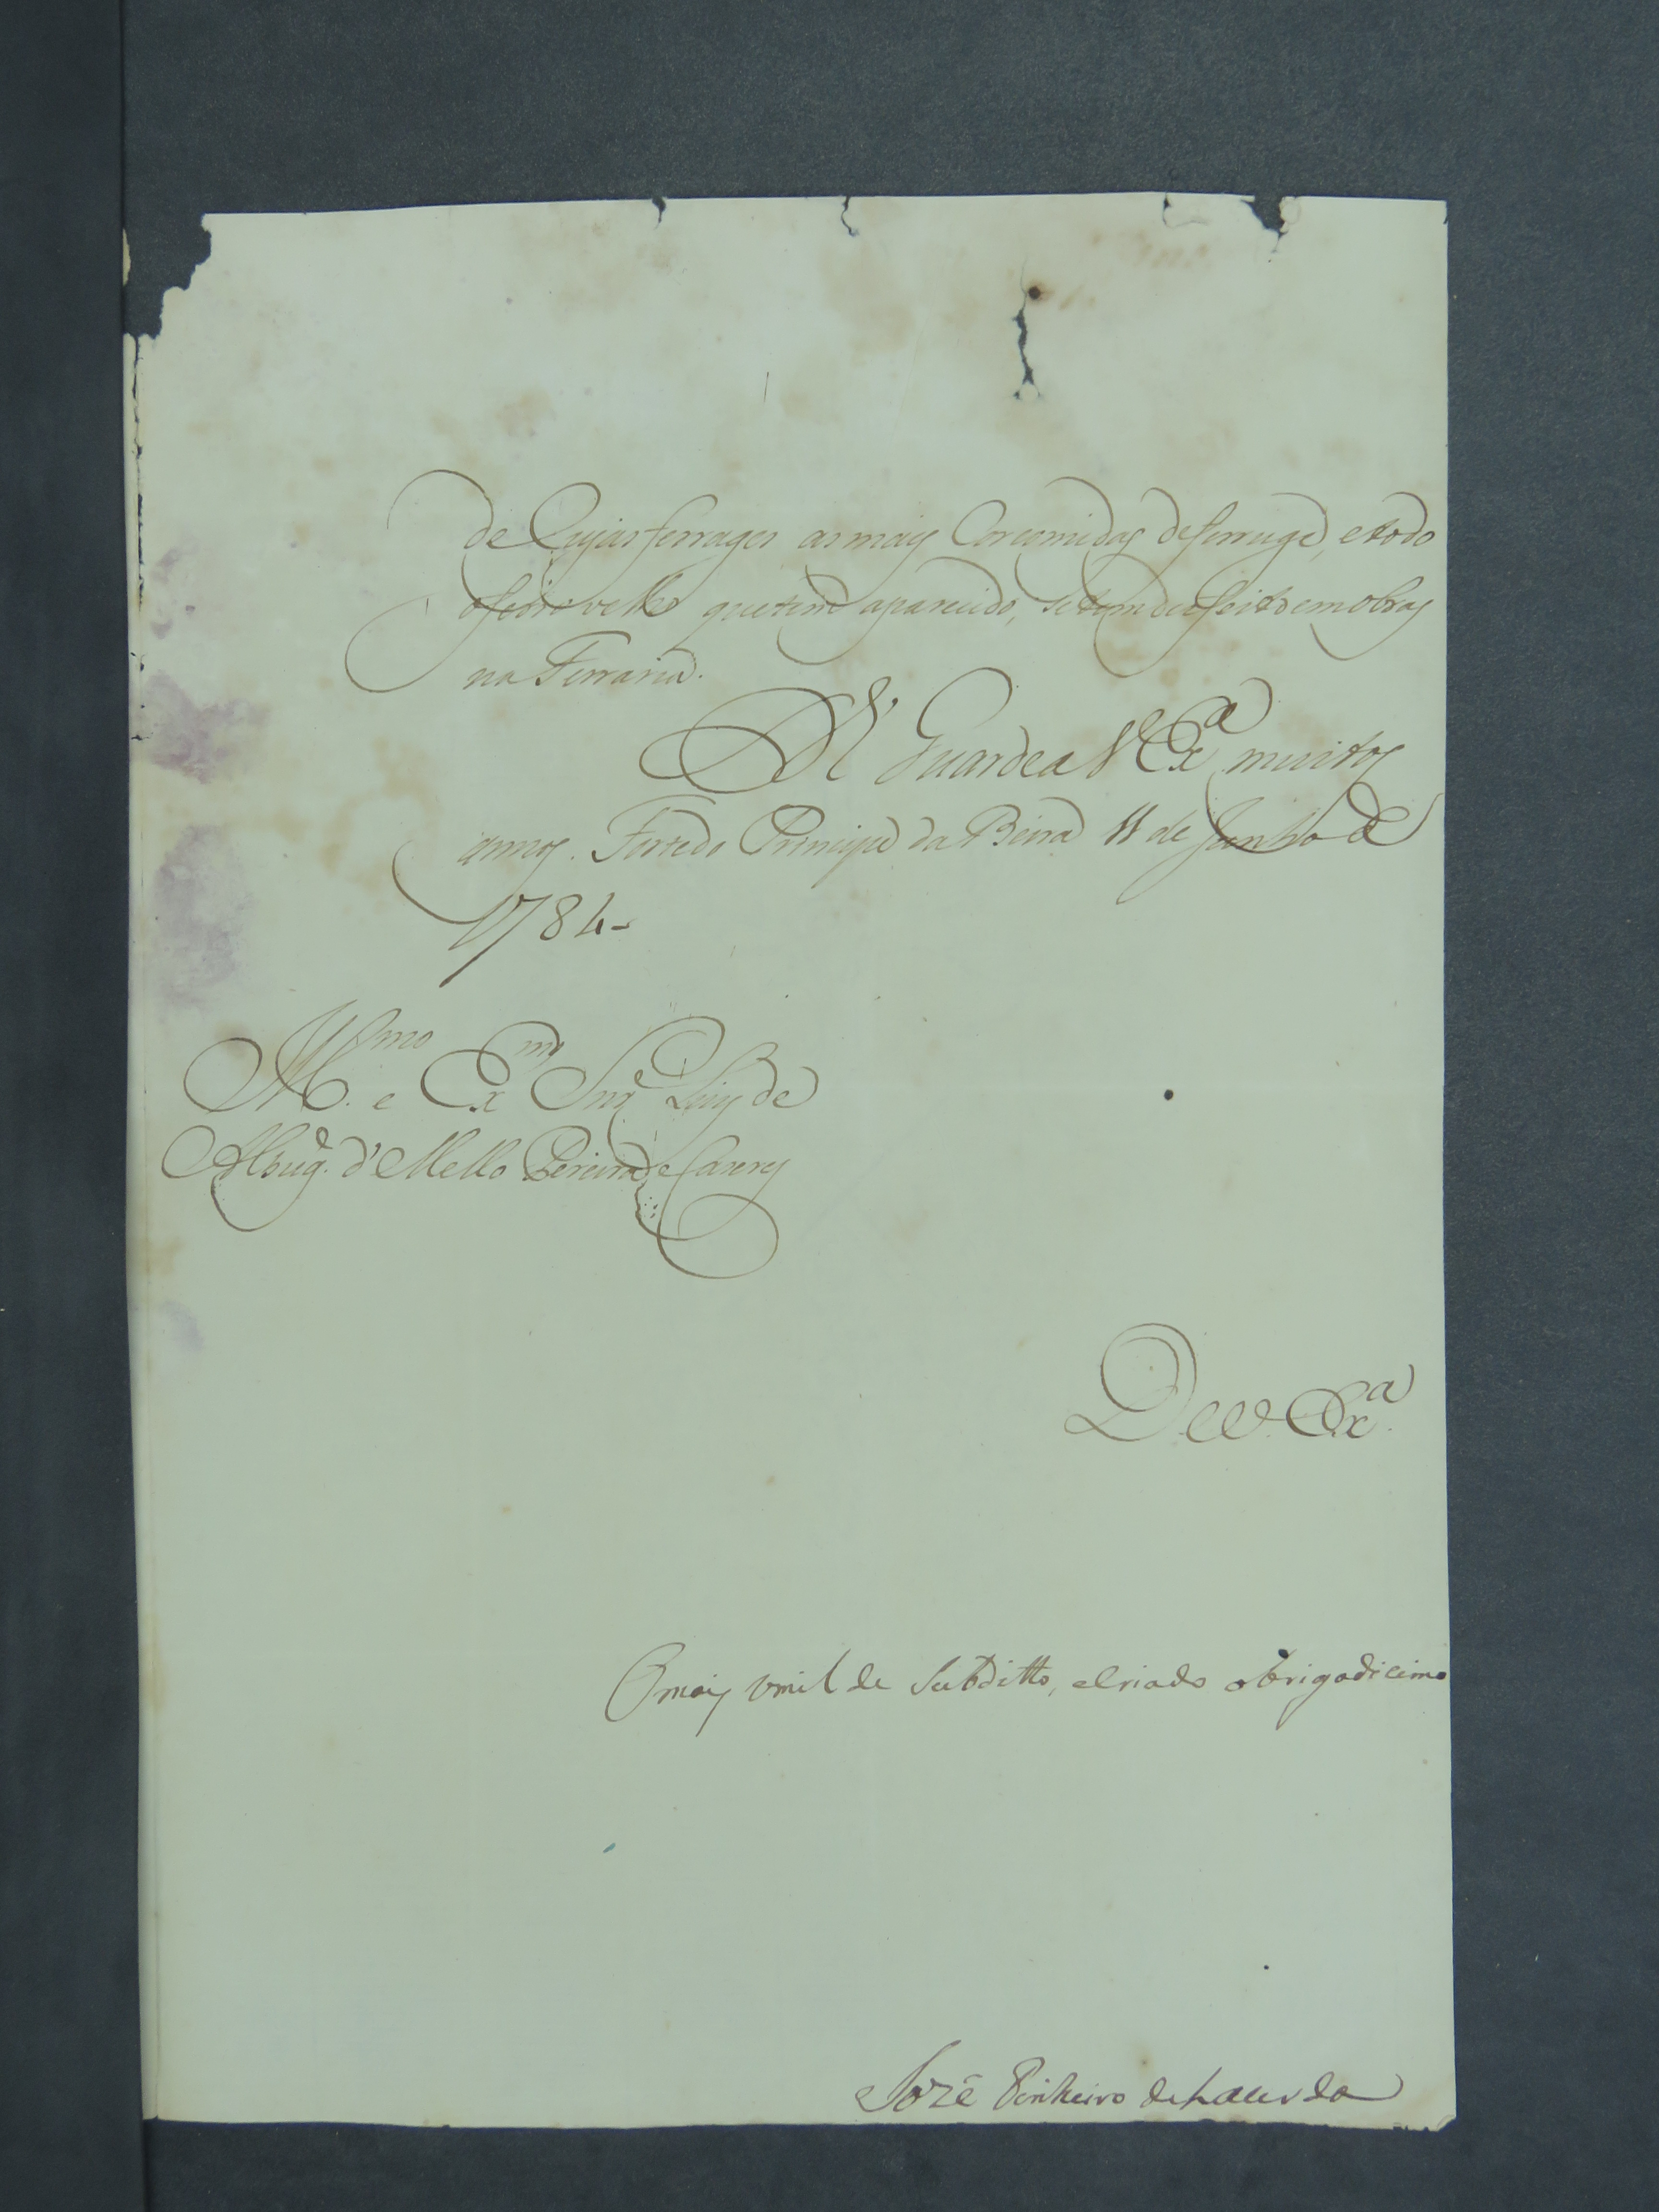 de Cujas ferrages as mais Corcomidas de ferruge, e todo
o ferro velho que tem aparecido, se tem desfeito em obras
na Ferraria.
Ds. Guarde a V. Exa. muitos
annos. Forte do Principe da Beira 11 de Junho de
1784-
Illmo. e Exmo. Snr. Luis de
Albuqe. d'Mello Pereira e Caceres
De V. Exa.
O mais Umilde Subditto, e Criado obrigadicimo
Jozé Pinheiro de Lacerda